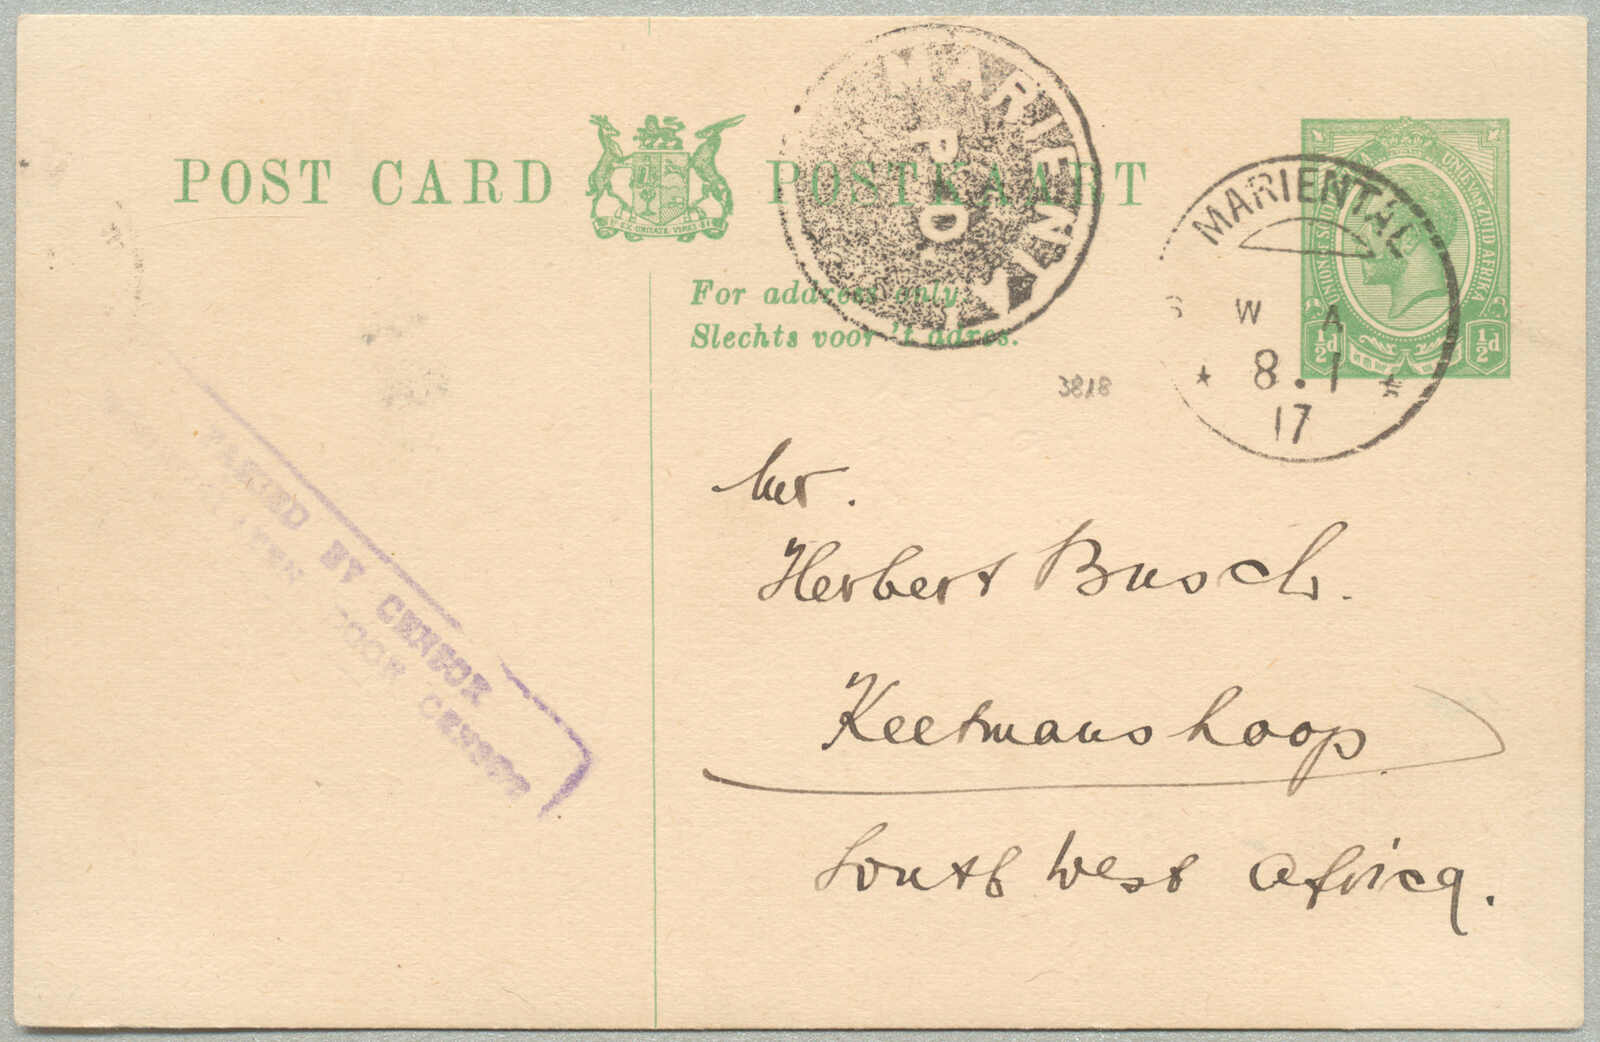 POST CARD POSTKAART
EX UNITATE VIRES
For address only
Slechts voor 't adres.
MARIENTAL
P.D.
UNION OF SOUTH AFRICA UNIE VAN ZUID AFRIKA
½d ½d
MARIENTAL
S W A
8.1
17
3818
PASSED BY CENSOR
DOOR CENSOR
Mr.
Herbert Busch.
Keetmanshoop
South West Africa.